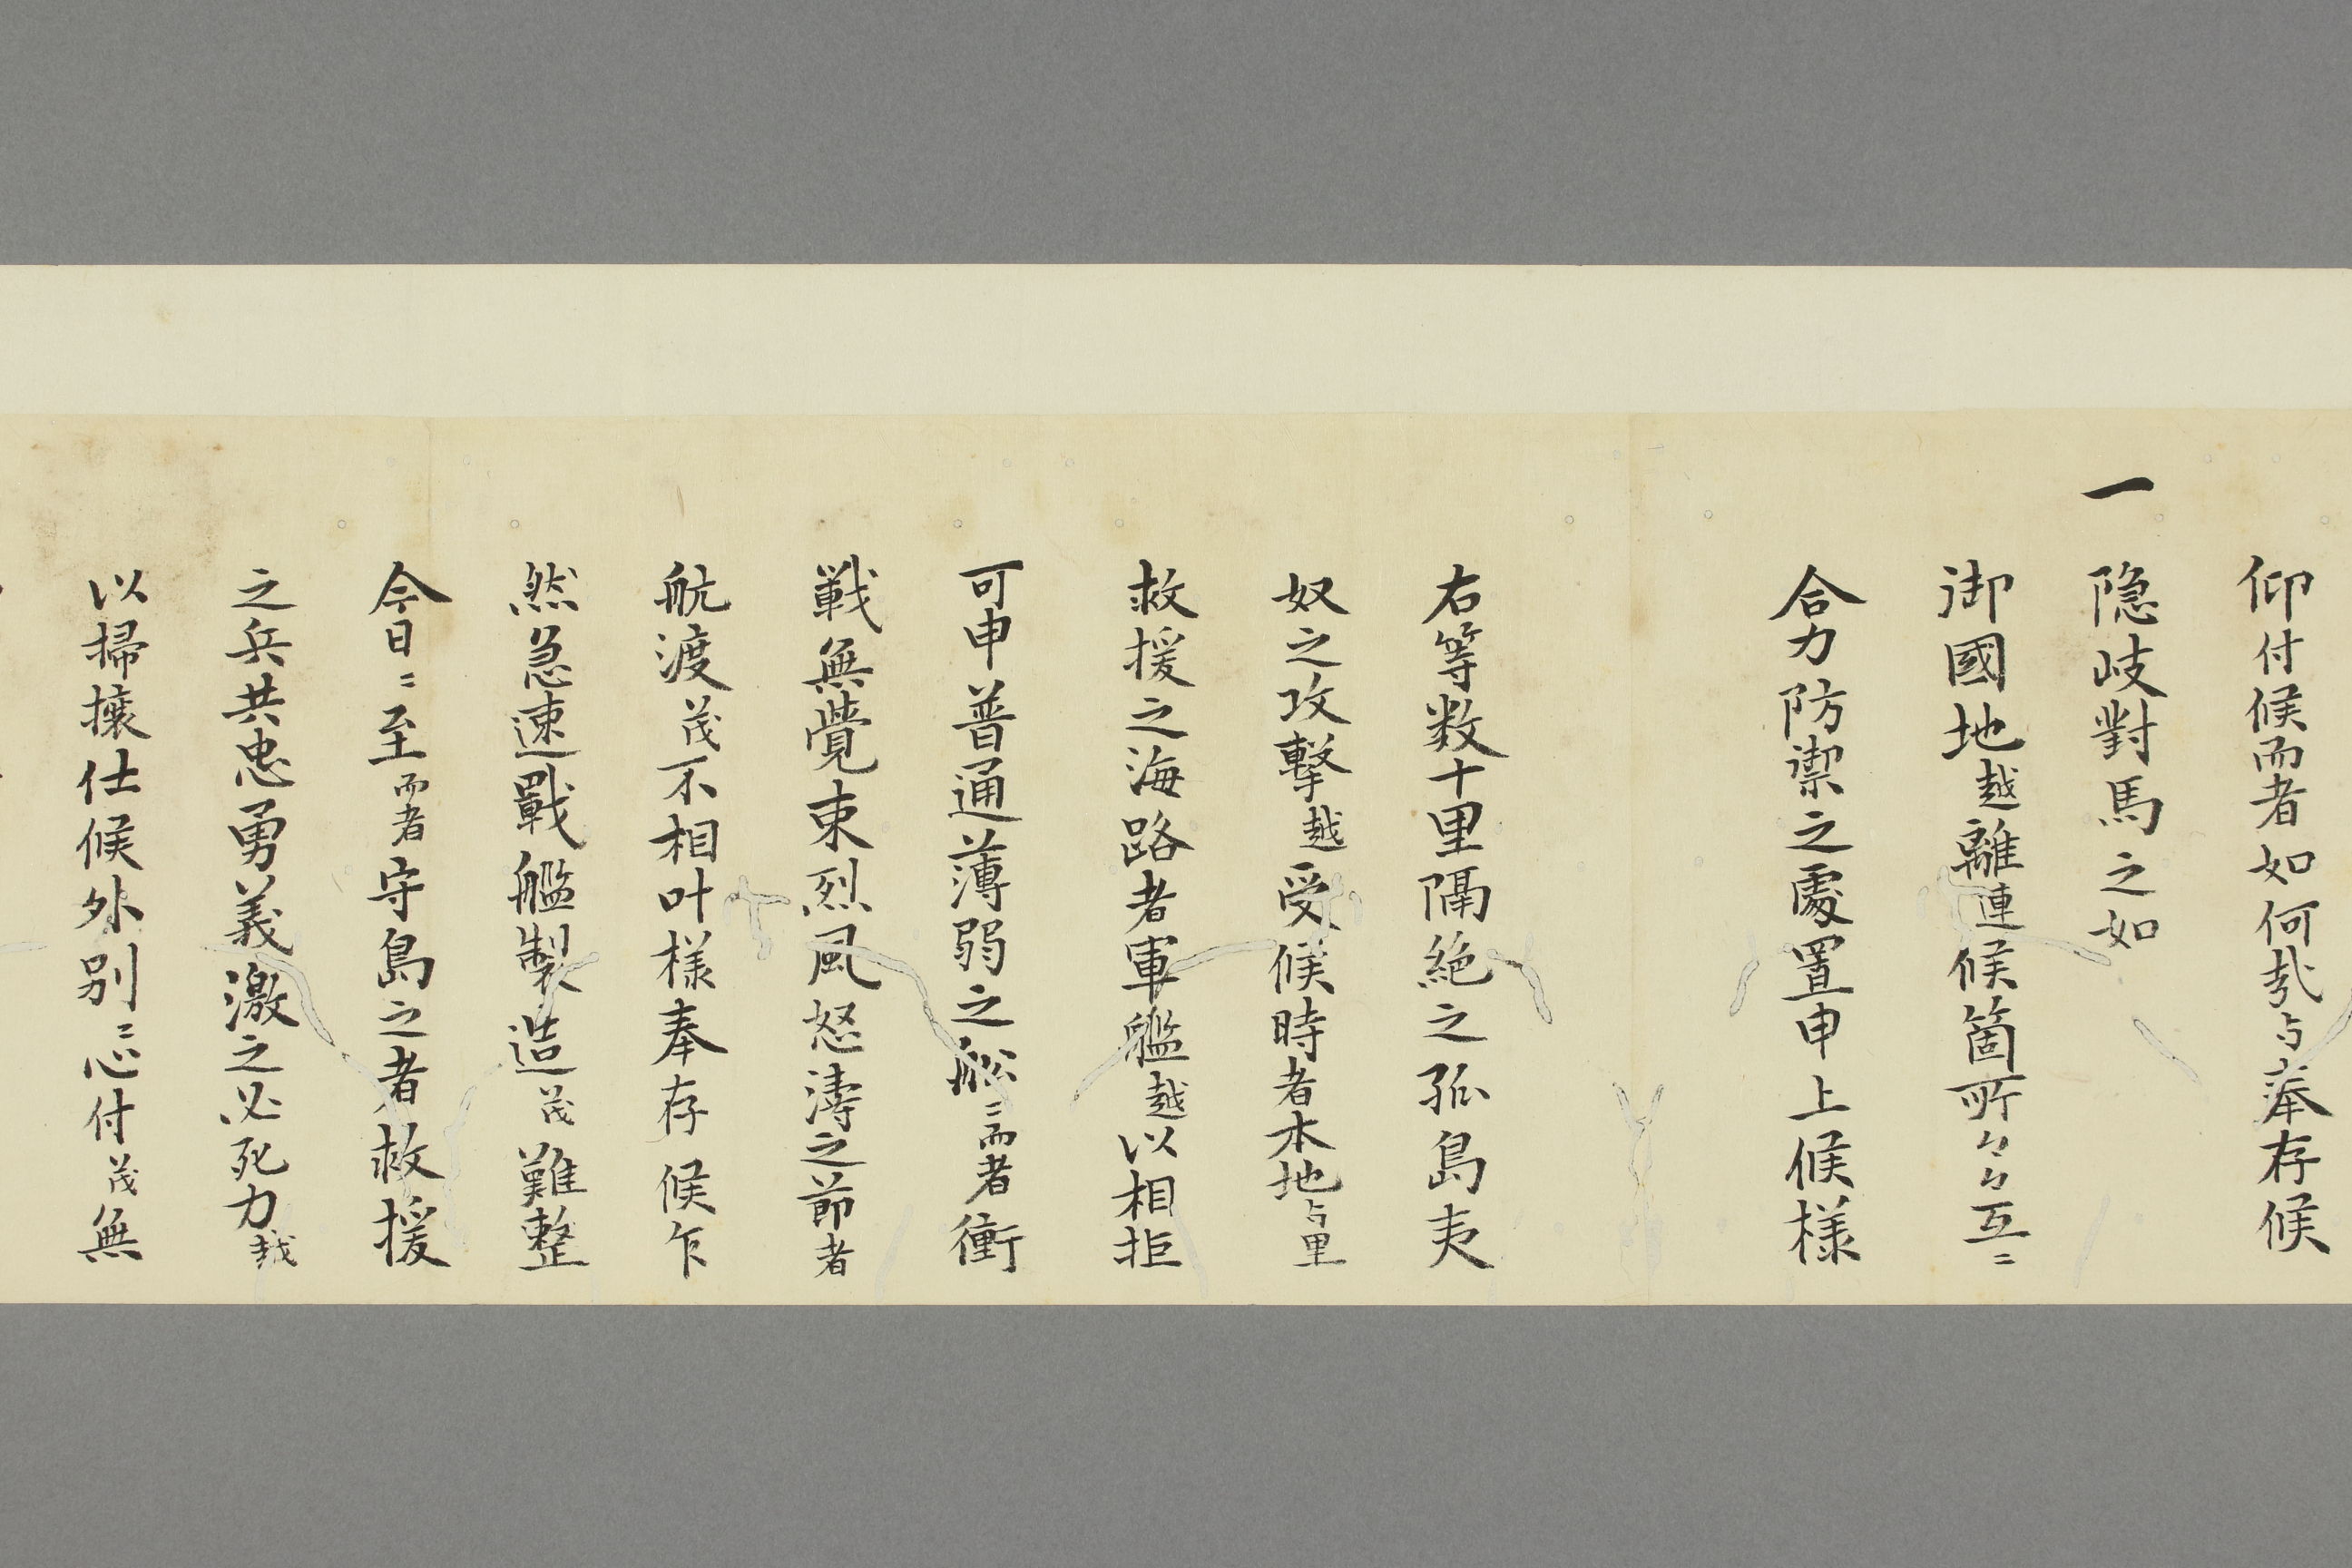 仰付候而者如何哉与奉存候
一 隠岐對馬之如
御國地越離連候箇所々々互ニ
合力防禦之處置申上候様
右等数十里隔絶之孤島夷
奴之攻撃越受候時者本地与里
救援之海路者軍艦越以相拒
可申普通薄弱之舩ニ而者衝
戦無覺束烈風怒濤之節者
航渡茂不相叶様奉存候乍
然急速戰艦製造茂難整
今日ニ至而者守島之者救援
之兵共忠勇義激之必死力越
以掃攘仕候外別ニ心付茂無